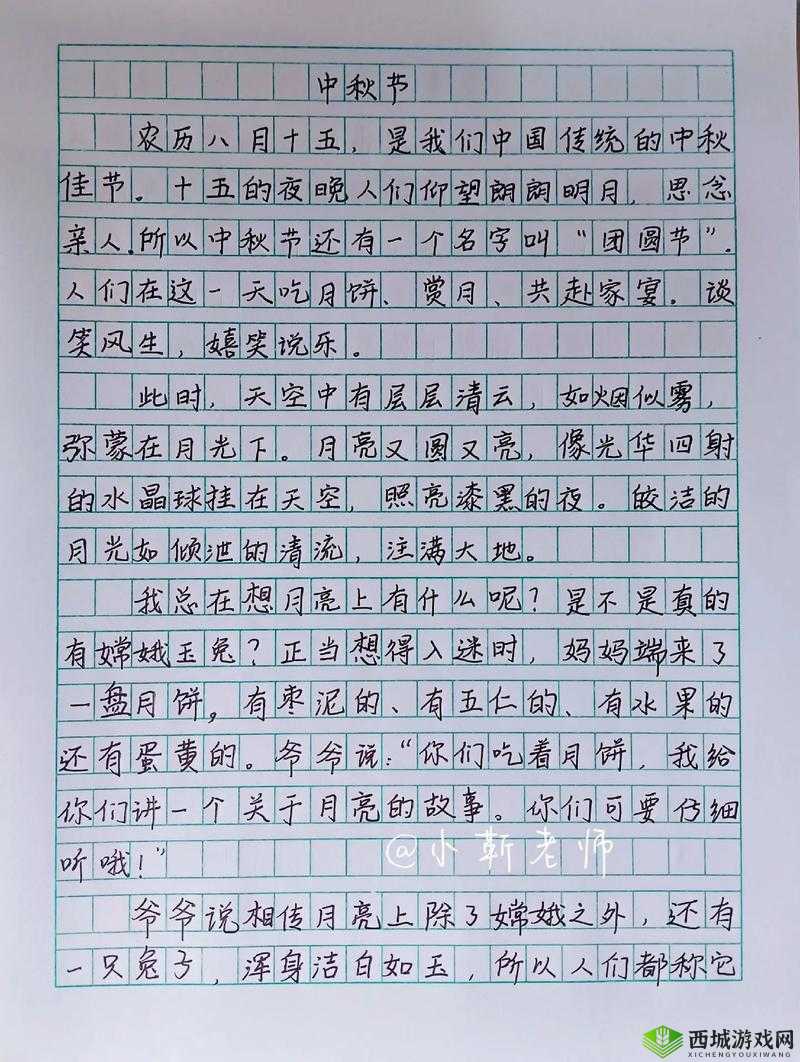 中秋节
农历八月十五，是我们中国传统的中秋
佳节。十五的夜晚人们仰望朗朗明月，思念
亲人.所以中秋节还有一个名字叫“团圆节”.
人们在这一天吃月饼、赏月、共赴家宴.谈
笑风生，嬉笑说乐。
此时，天空中有层层清云，如烟似雾，
弥蒙在月光下。月亮又圆又亮，像光华四射
的水晶球挂在天空，照亮漆黑的夜。皎洁的
月光如倾泄的清流，注满大地。
我总在想月亮上有什么呢？是不是真的
有嫦娥玉兔？正当想得入迷时，妈妈端来了
一盘月饼，有枣泥的、有五仁的、有水果的
还有蛋黄的。爷爷说：“你们吃着月饼，我给
你们讲一个关于月亮的故事。你们可要仔细
听哦！”
@小靳老师
爷爷说相传月亮上除了嫦娥之外，还有
一只兔子，浑身洁白如玉，所以人们都称它
西城游戏网
XICHENGYOUXIWANG